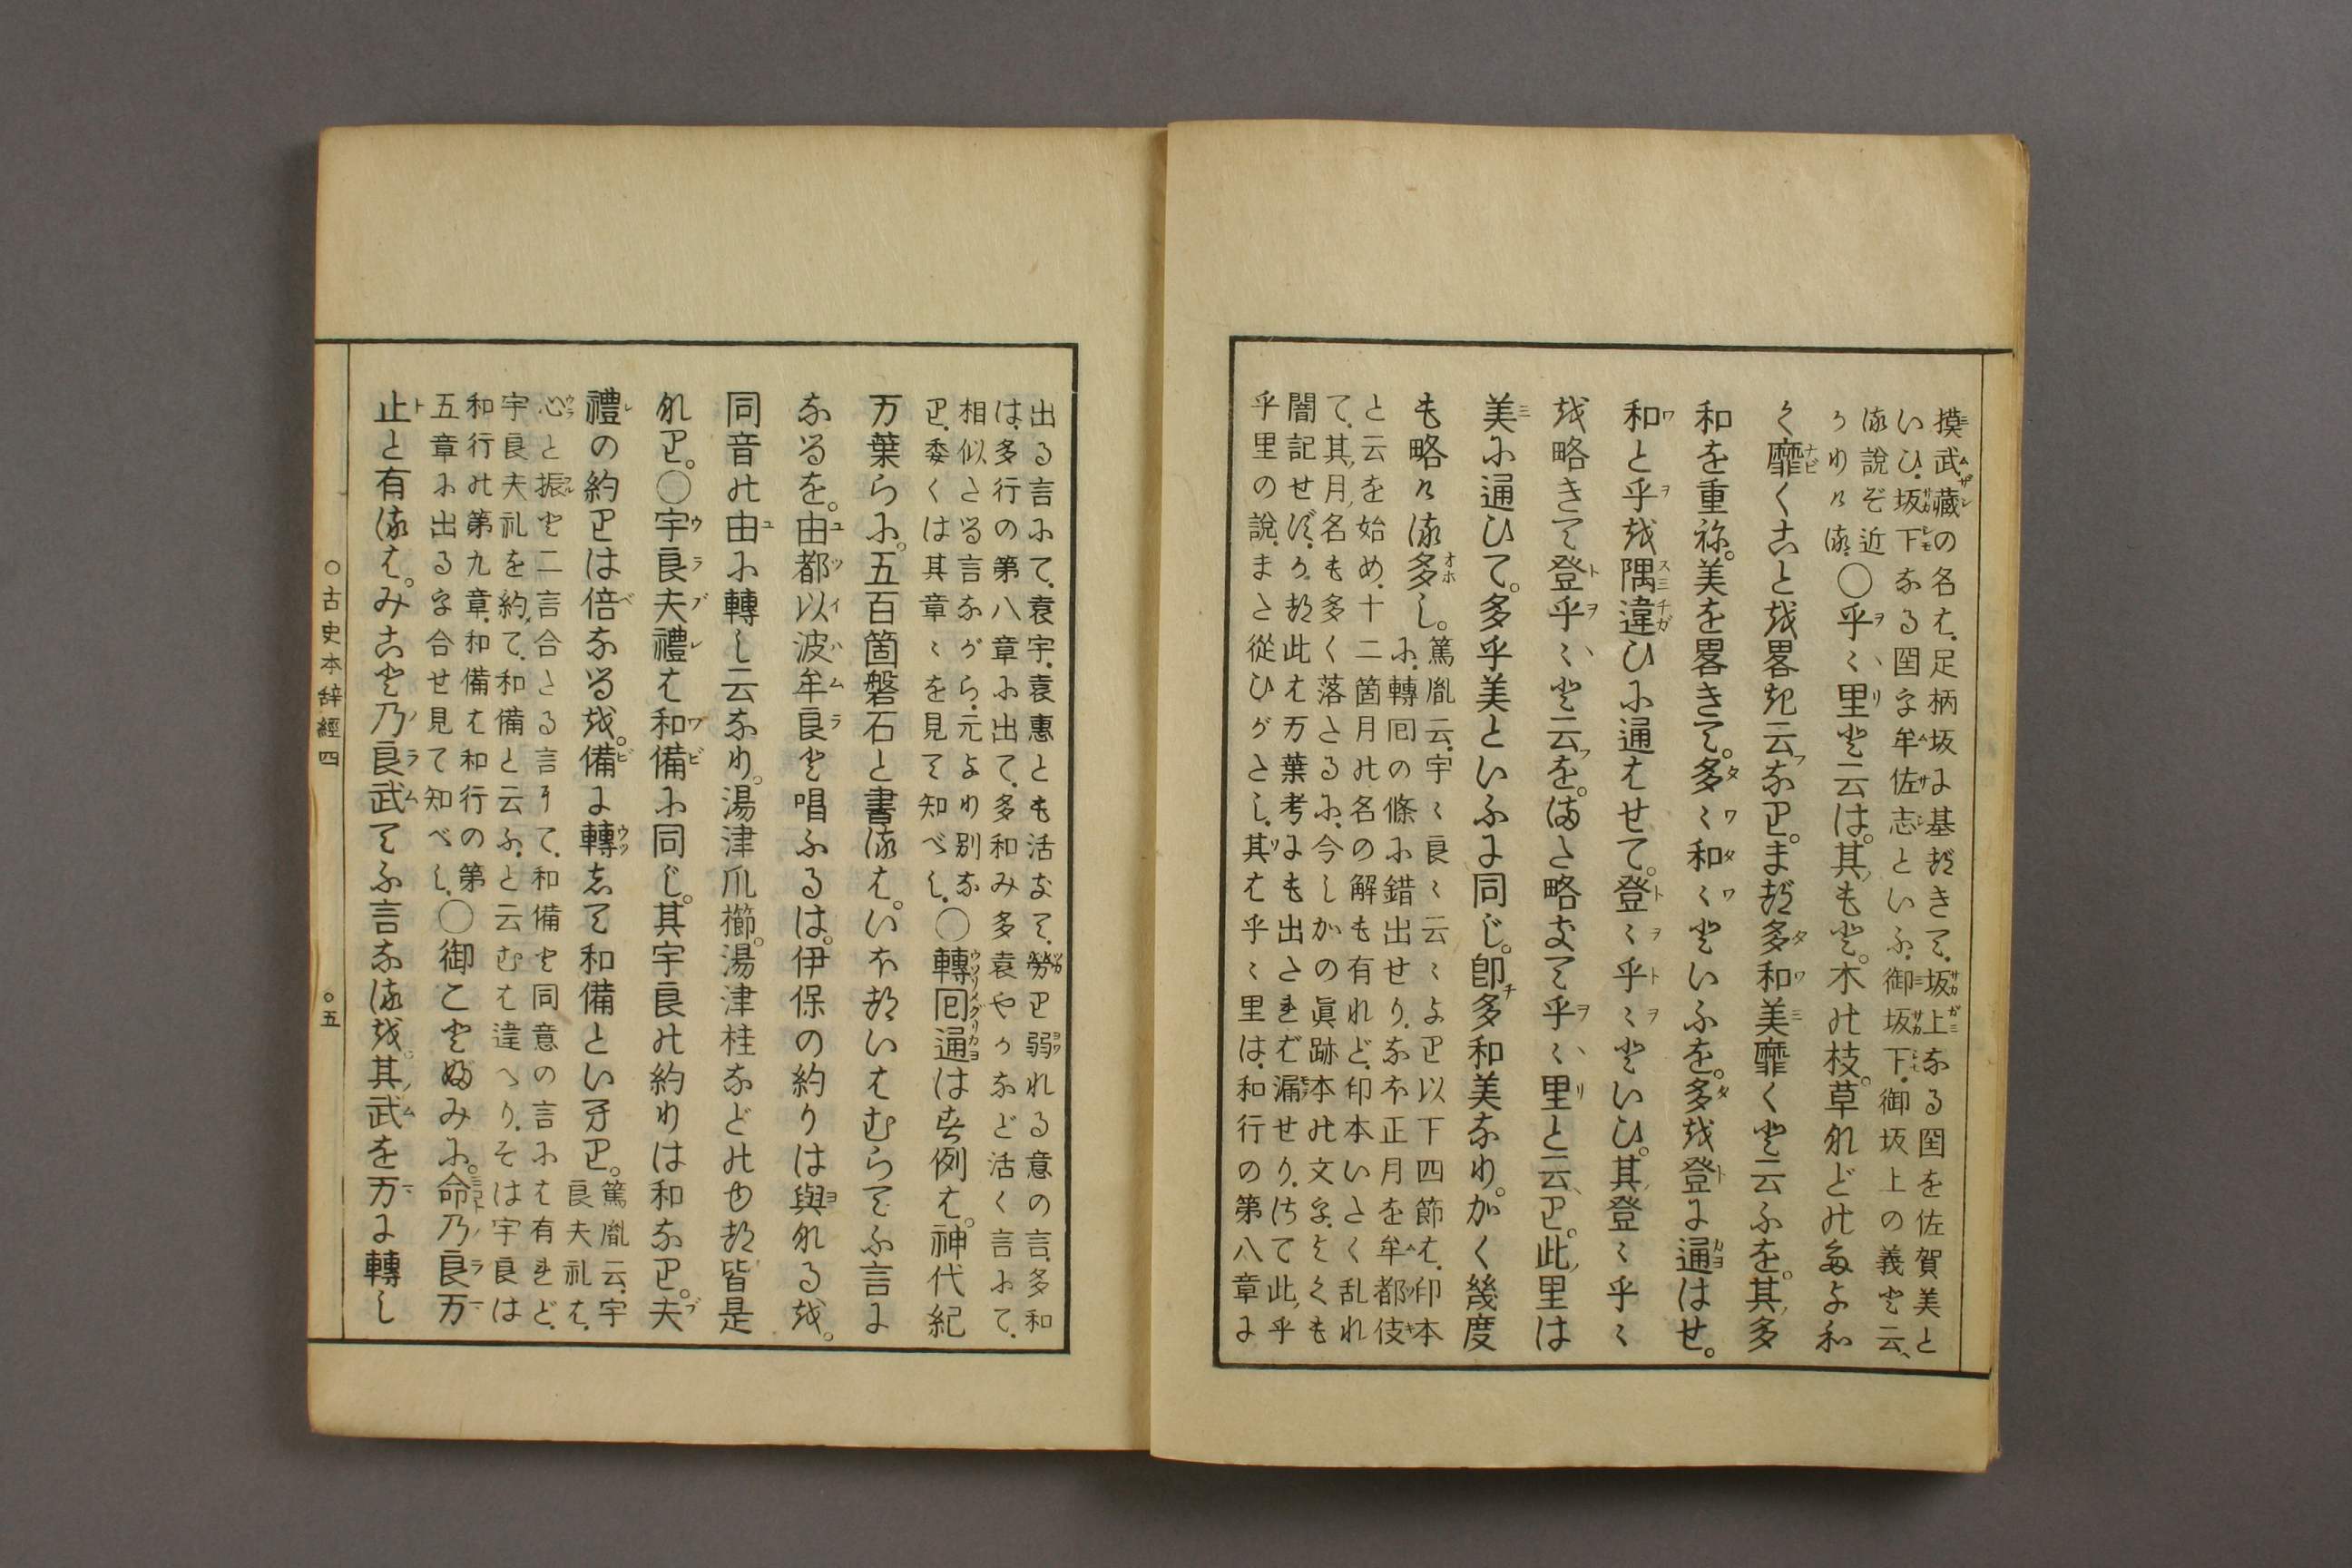 摸武藏の名は、足柄坂に基づきて、坂上なる国を佐賀美と
いひ、坂下なる国を牟佐志といふ、御坂下、御坂上の義と云、
る說ぞ近
かりける、○乎〻里と云は、其も と、木の枝、草れどのたよ和
く靡くことを畧き云なり。また多和美靡くと云ふを、其多
和を重ね、美を畧きて、多〻和〻といふを、多を登に通はせ、
和と乎を隅違ひに通はせて、登〻乎〻といひ、其登〻乎〻
を略きて登乎〻と云を、また略きて乎〻里と云り。此里は
美に通ひて、多乎美といふに同じ。卽多和美なり。かく幾度
も略ける多し。
篤胤云、宇〻良〻云〻より以下四節は、印本
に、轉回の條に錯出せり、なほ正月を牟都伎
と云を始め、十二箇月の名の解も有れど、印本いたく乱れ
て、其月名も多く落たるに、今しかの眞跡本の文字、よくも
闇記せず、かつ此は万葉考にも出たれば漏せり、さて此乎
乎里の說、また從ひがたし、其は乎〻里は、和行の第八章に
出る言にて、袁宇、袁惠とも活きて、勞り弱れる意の言、多和
は、多行の第八章に出て、多和み多袁やかなど活く言にて、
相似たる言ながら、元より別な
り、委くは其章〻を見て知べし、○轉回通はす例は、神代紀
万葉らに、五百箇磐石と書るは、いほついはむらてふ言に
なるを、由都以波牟良と唱ふるは、伊保の約りは與れるを、
同音の由に轉し云なり。湯津爪櫛、湯津桂などのゆつ皆是
れり。○宇良夫禮は和備に同じ。其宇良の約りは和なり。夫
禮の約りは倍なるを、備に轉して和備といへり。
篤胤云、宇
良夫礼は、
心と振と二言合たる言にて、和備と同意の言には有れど、
宇良夫礼を約て、和備と云ふ、と云むは違へり、そは宇良は
和行の第九章、和備は和行の第
五章に出るを合せ見て知べし、○御ことのみに、命乃良万
止と有るは、みこと乃良武てふ言なるを、其武を万に轉し
○古史本辞經四
○五